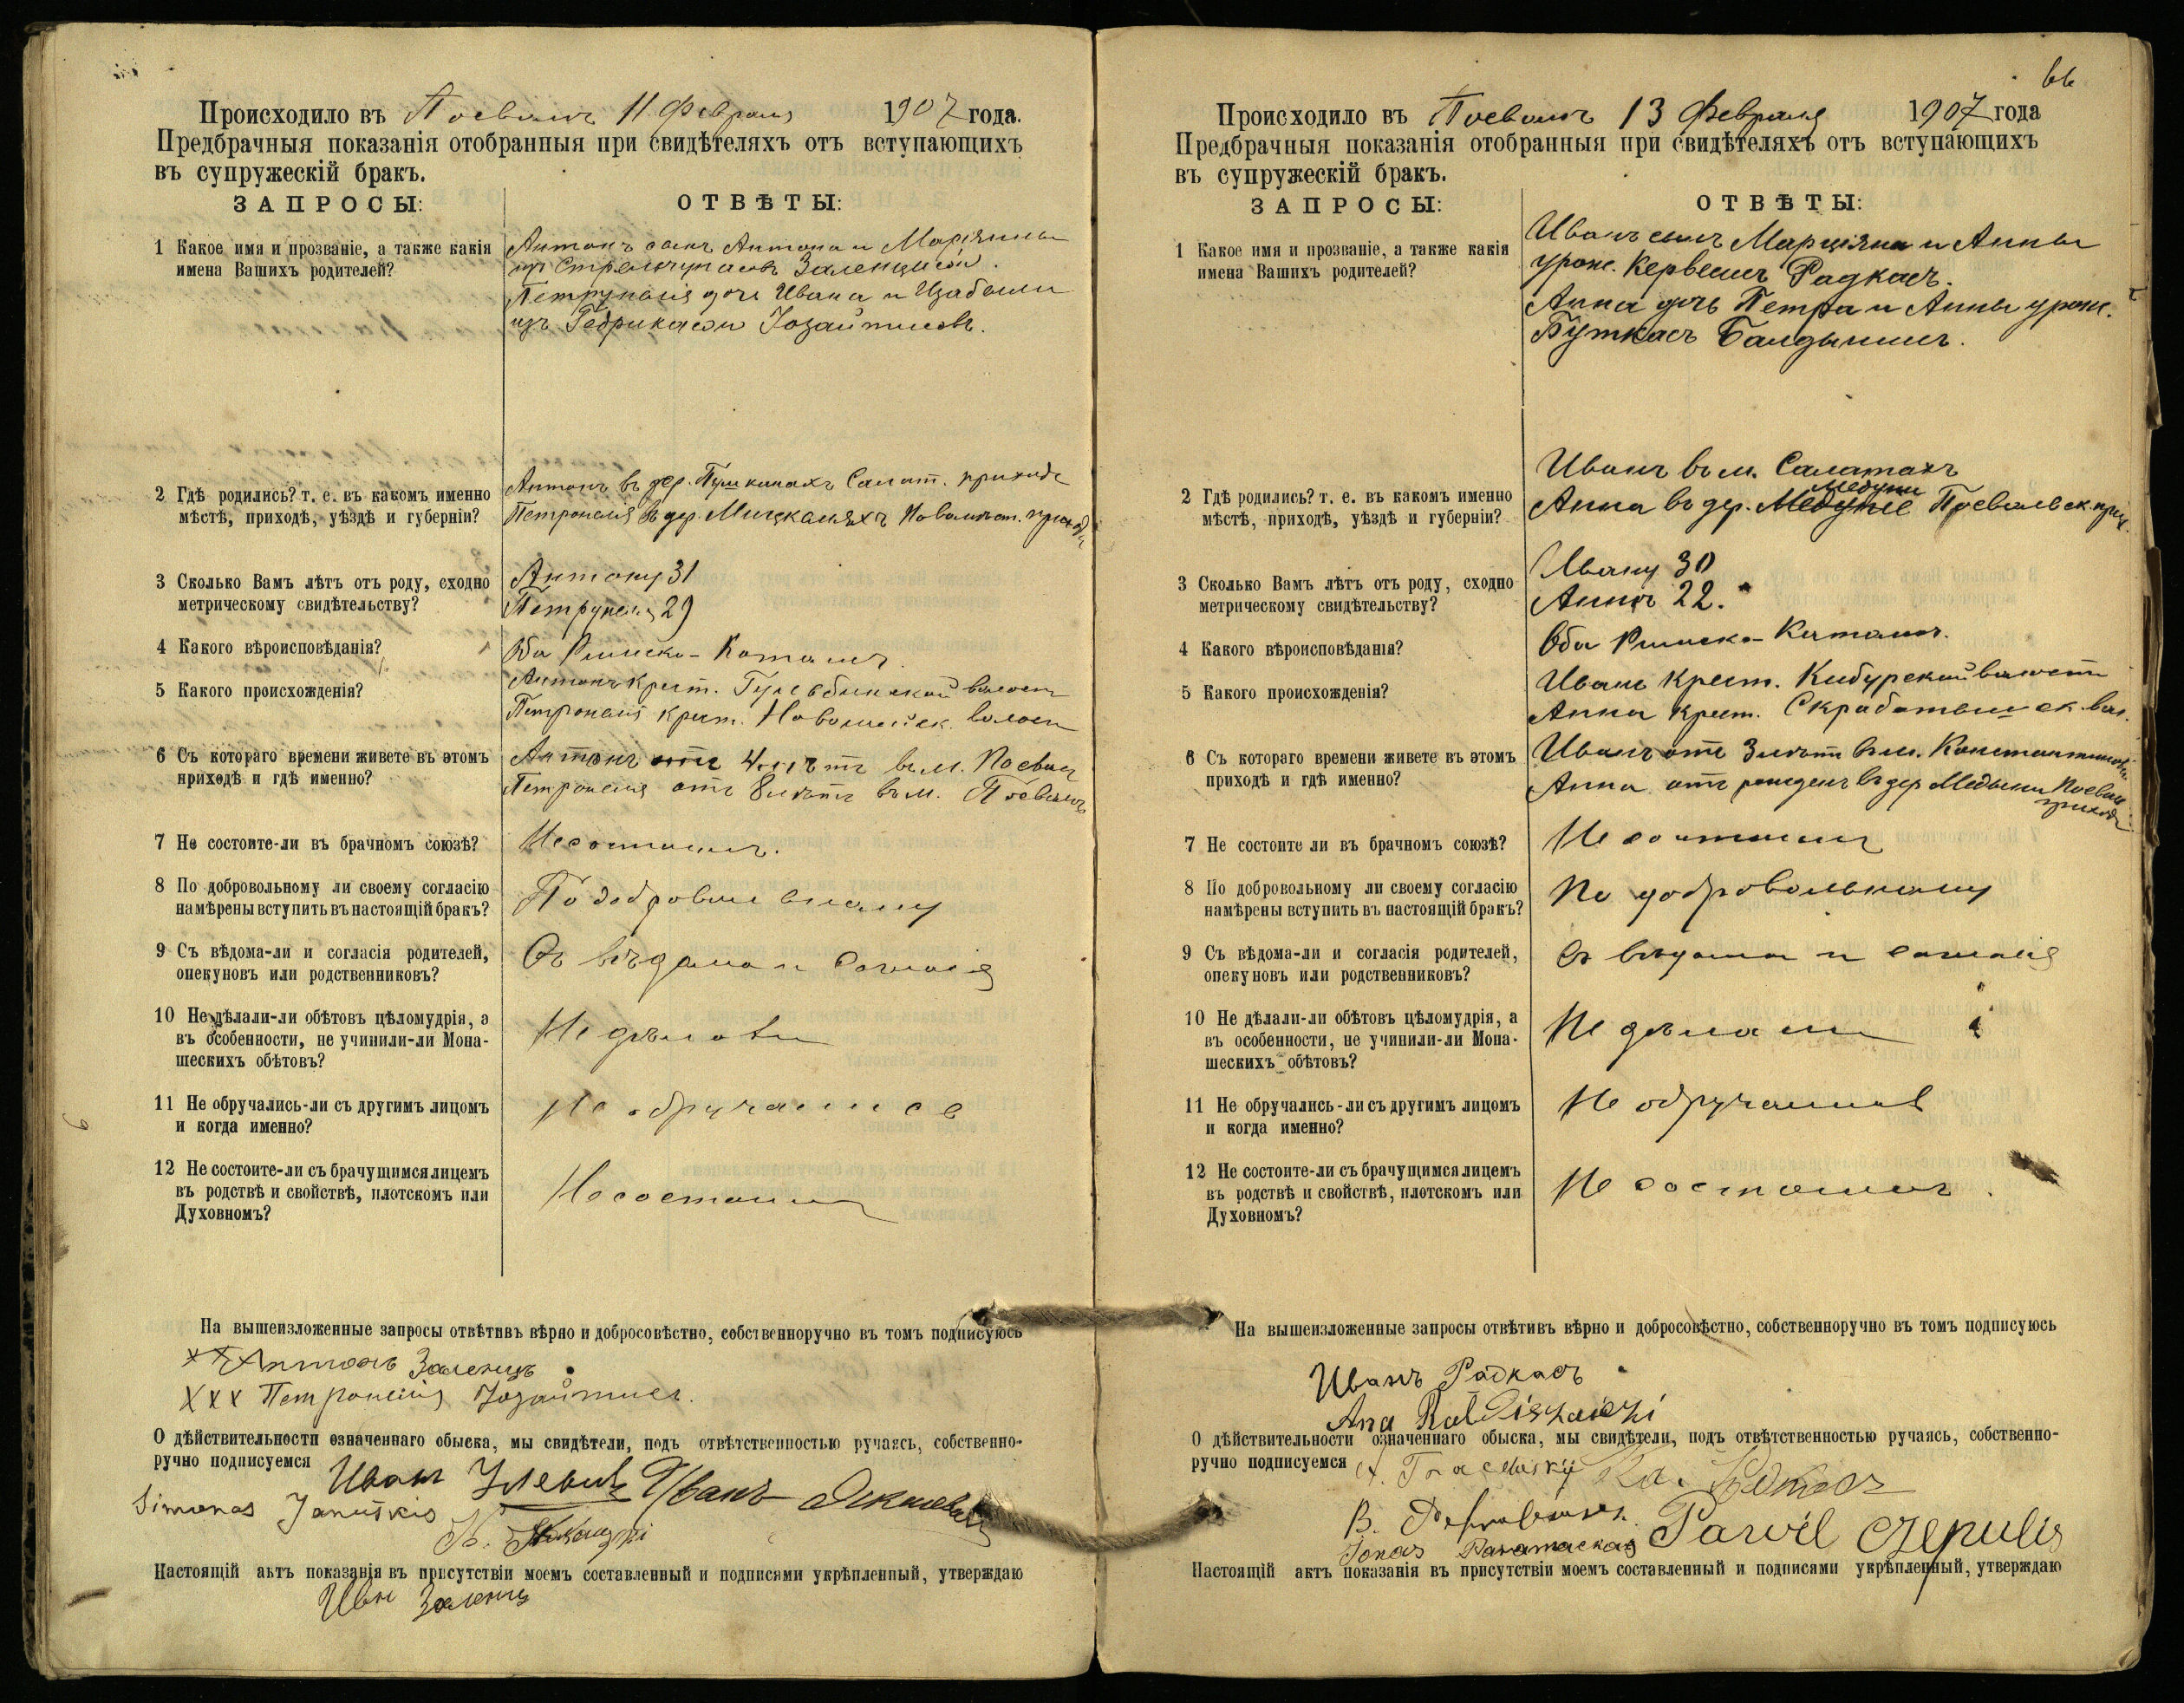 Происходило въ Поеволъ 11 Февраля 1907 года.
Предбрачныя показанія отобранныя при свидѣтеляхъ отъ вступающихъ
въ супружескій бракъ.
ЗАПРОСЫ: ОТВѢТЫ:
1 Какое имя и прозваніе, а также какія
имена Вашихъ родителей?
Антонъ сынъ Антона и Маріянны
изъ
Петрунелія дочь Ивана и Изабели
изъ Гедрикасои Іозайтисовъ.
2 Гдѣ родились? т. е. въ какомъ именно
мѣстѣ, приходѣ, уѣздѣ и губерніи?
Антонъ въ дер. Салат. прихода
Петронелія въ дер.
3 Сколько Вамъ лѣтъ отъ роду, сходно
метрическому свидѣтельству?
Антону 31
Петрунели 29
4 Какого вѣроисповѣданія?
Оба Римско-Католич.
5 Какого происхожденія?
Антонъ крест. волости
Петронелія крест. волости
6 Съ котораго времени живете въ этомъ
приходѣ и гдѣ именно?
Антонъ отъ 4 лѣтъ въ м. Поевол
Петронелія отъ 8 лѣтъ въ м. Поеволъ
7 Не состоите-ли въ брачномъ союзѣ?
Не состоимъ.
8 По добровольному ли своему согласію
намѣрены вступить въ настоящій бракъ?
По добровольному
9 Съ вѣдома-ли и согласія родителей,
опекуновъ или родственниковъ?
Съ вѣдома и согласія
10 Не дѣлали-ли обѣтовъ цѣломудрія, а
въ особенности, не учинили-ли Мона-
шескихъ обѣтовъ?
Не дѣлали
11 Не обручались-ли съ другимъ лицомъ
и когда именно?
Не обручались
12 Не состоите-ли съ брачущимся лицемъ
въ родствѣ и свойствѣ, плотскомъ или
Духовномъ?
Не состоимъ
На вышеизложенные запросы отвѣтивъ вѣрно и добросовѣстно, собственноручно въ томъ подписуюсь
XXX Антонъ Заленцъ
XXX Петронелія Іозайтисъ.
О дѣйствительности означеннаго обыска, мы свидѣтели, подъ отвѣтственностью ручаясь, собственно-
ручно подписуемся Иванъ Иванъ
Simonas Januškis
Настоящій актъ показанія въ присутствіи моемъ составленный и подписями укрѣпленный, утверждаю
Ивн Заленц
66
Происходило въ Поеволъ 13 Февраля 1907 года
Предбрачныя показанія отобранныя при свидѣтеляхъ отъ вступающихъ
въ супружескій бракъ.
ЗАПРОСЫ: ОТВѢТЫ:
1 Какое имя и прозваніе, а также какія
имена Вашихъ родителей?
Иванъ сынъ Марціяна и Анны
урож. Радкасъ.
Анна дочь Петра и Анны урож.
Буткасъ
2 Гдѣ родились? т. е. въ какомъ именно
мѣстѣ, приходѣ, уѣздѣ и губерніи?
Иванъ въ м. Салатахъ
Анна въ дер. Медуни Поевольск. прих.
3 Сколько Вамъ лѣтъ отъ роду, сходно
метрическому свидѣтельству?
Ивану 30
Аннѣ 22.
4 Какого вѣроисповѣданія?
Оба Римско-Католич.
5 Какого происхожденія?
Иванъ крест. Кибурской волости
Анна крест. вол.
6 Съ котораго времени живете въ этомъ
приходѣ и гдѣ именно?
Иванъ отъ 3 лѣтъ въ м.
Анна отъ рожден въ дер Поевол прихода
7 Не состоите ли въ брачномъ союзѣ?
Не состоимъ
8 По добровольному ли своему согласію
намѣрены вступить въ настоящій бракъ?
По добровольному
9 Съ вѣдома-ли и согласія родителей,
опекуновъ или родственниковъ?
Съ вѣдома и согласія
10 Не дѣлали-ли обѣтовъ цѣломудрія, а
въ особенности, не учинили-ли Мона-
шескихъ обѣтовъ?
Не дѣлали
11 Не обручались-ли съ другимъ лицомъ
и когда именно?
Не обручались
12 Не состоите-ли съ брачущимся лицемъ
въ родствѣ и свойствѣ, плотскомъ или
Духовномъ?
Не состоимъ.
На вышеизложенные запросы отвѣтивъ вѣрно и добросовѣстно, собственноручно въ томъ подписуюсь
Иванъ Радкасъ
Ana
О дѣйствительности означеннаго обыска, мы свидѣтели, подъ отвѣтственностью ручаясь, собственно-
ручно подписуемся
B.
Jonas Pawel Czepulis
Настоящій актъ показанія въ присутствіи моемъ составленный и подписями укрѣпленный, утверждаю